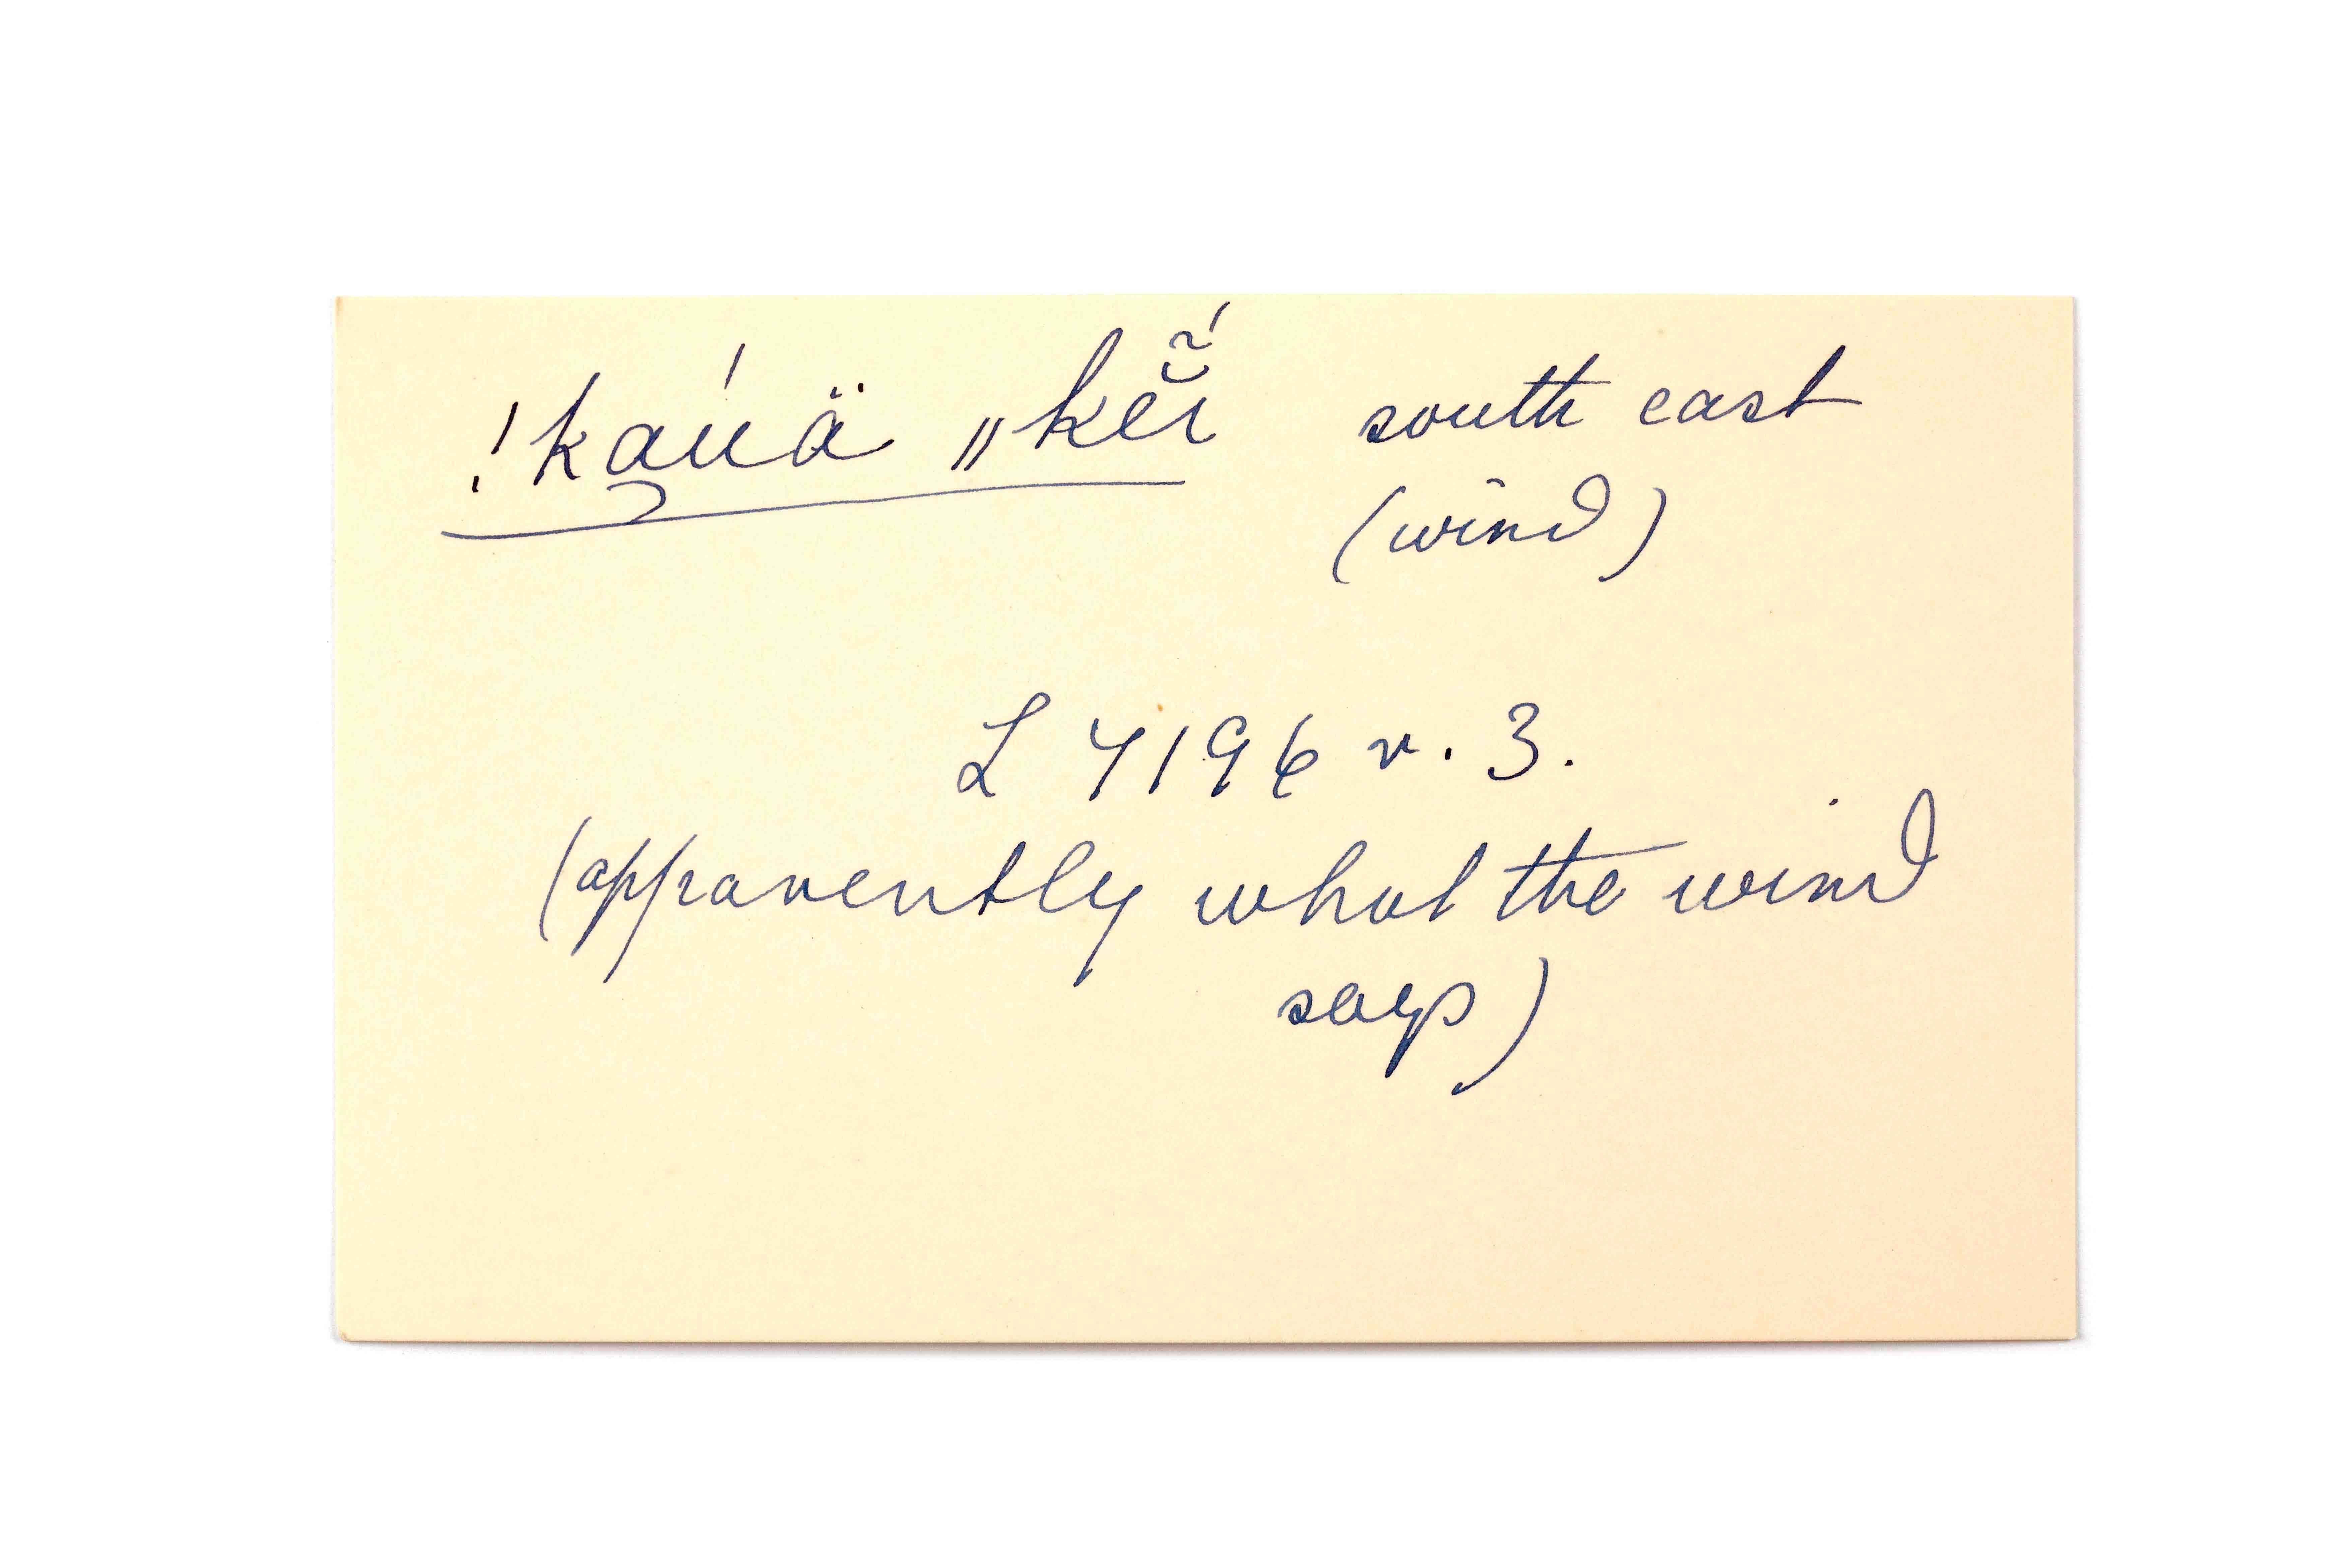 !kau̗ä ǁkĕ̃ı́ south east
(wind)
L 4196 v. 3.
(apparently what the wind
says)